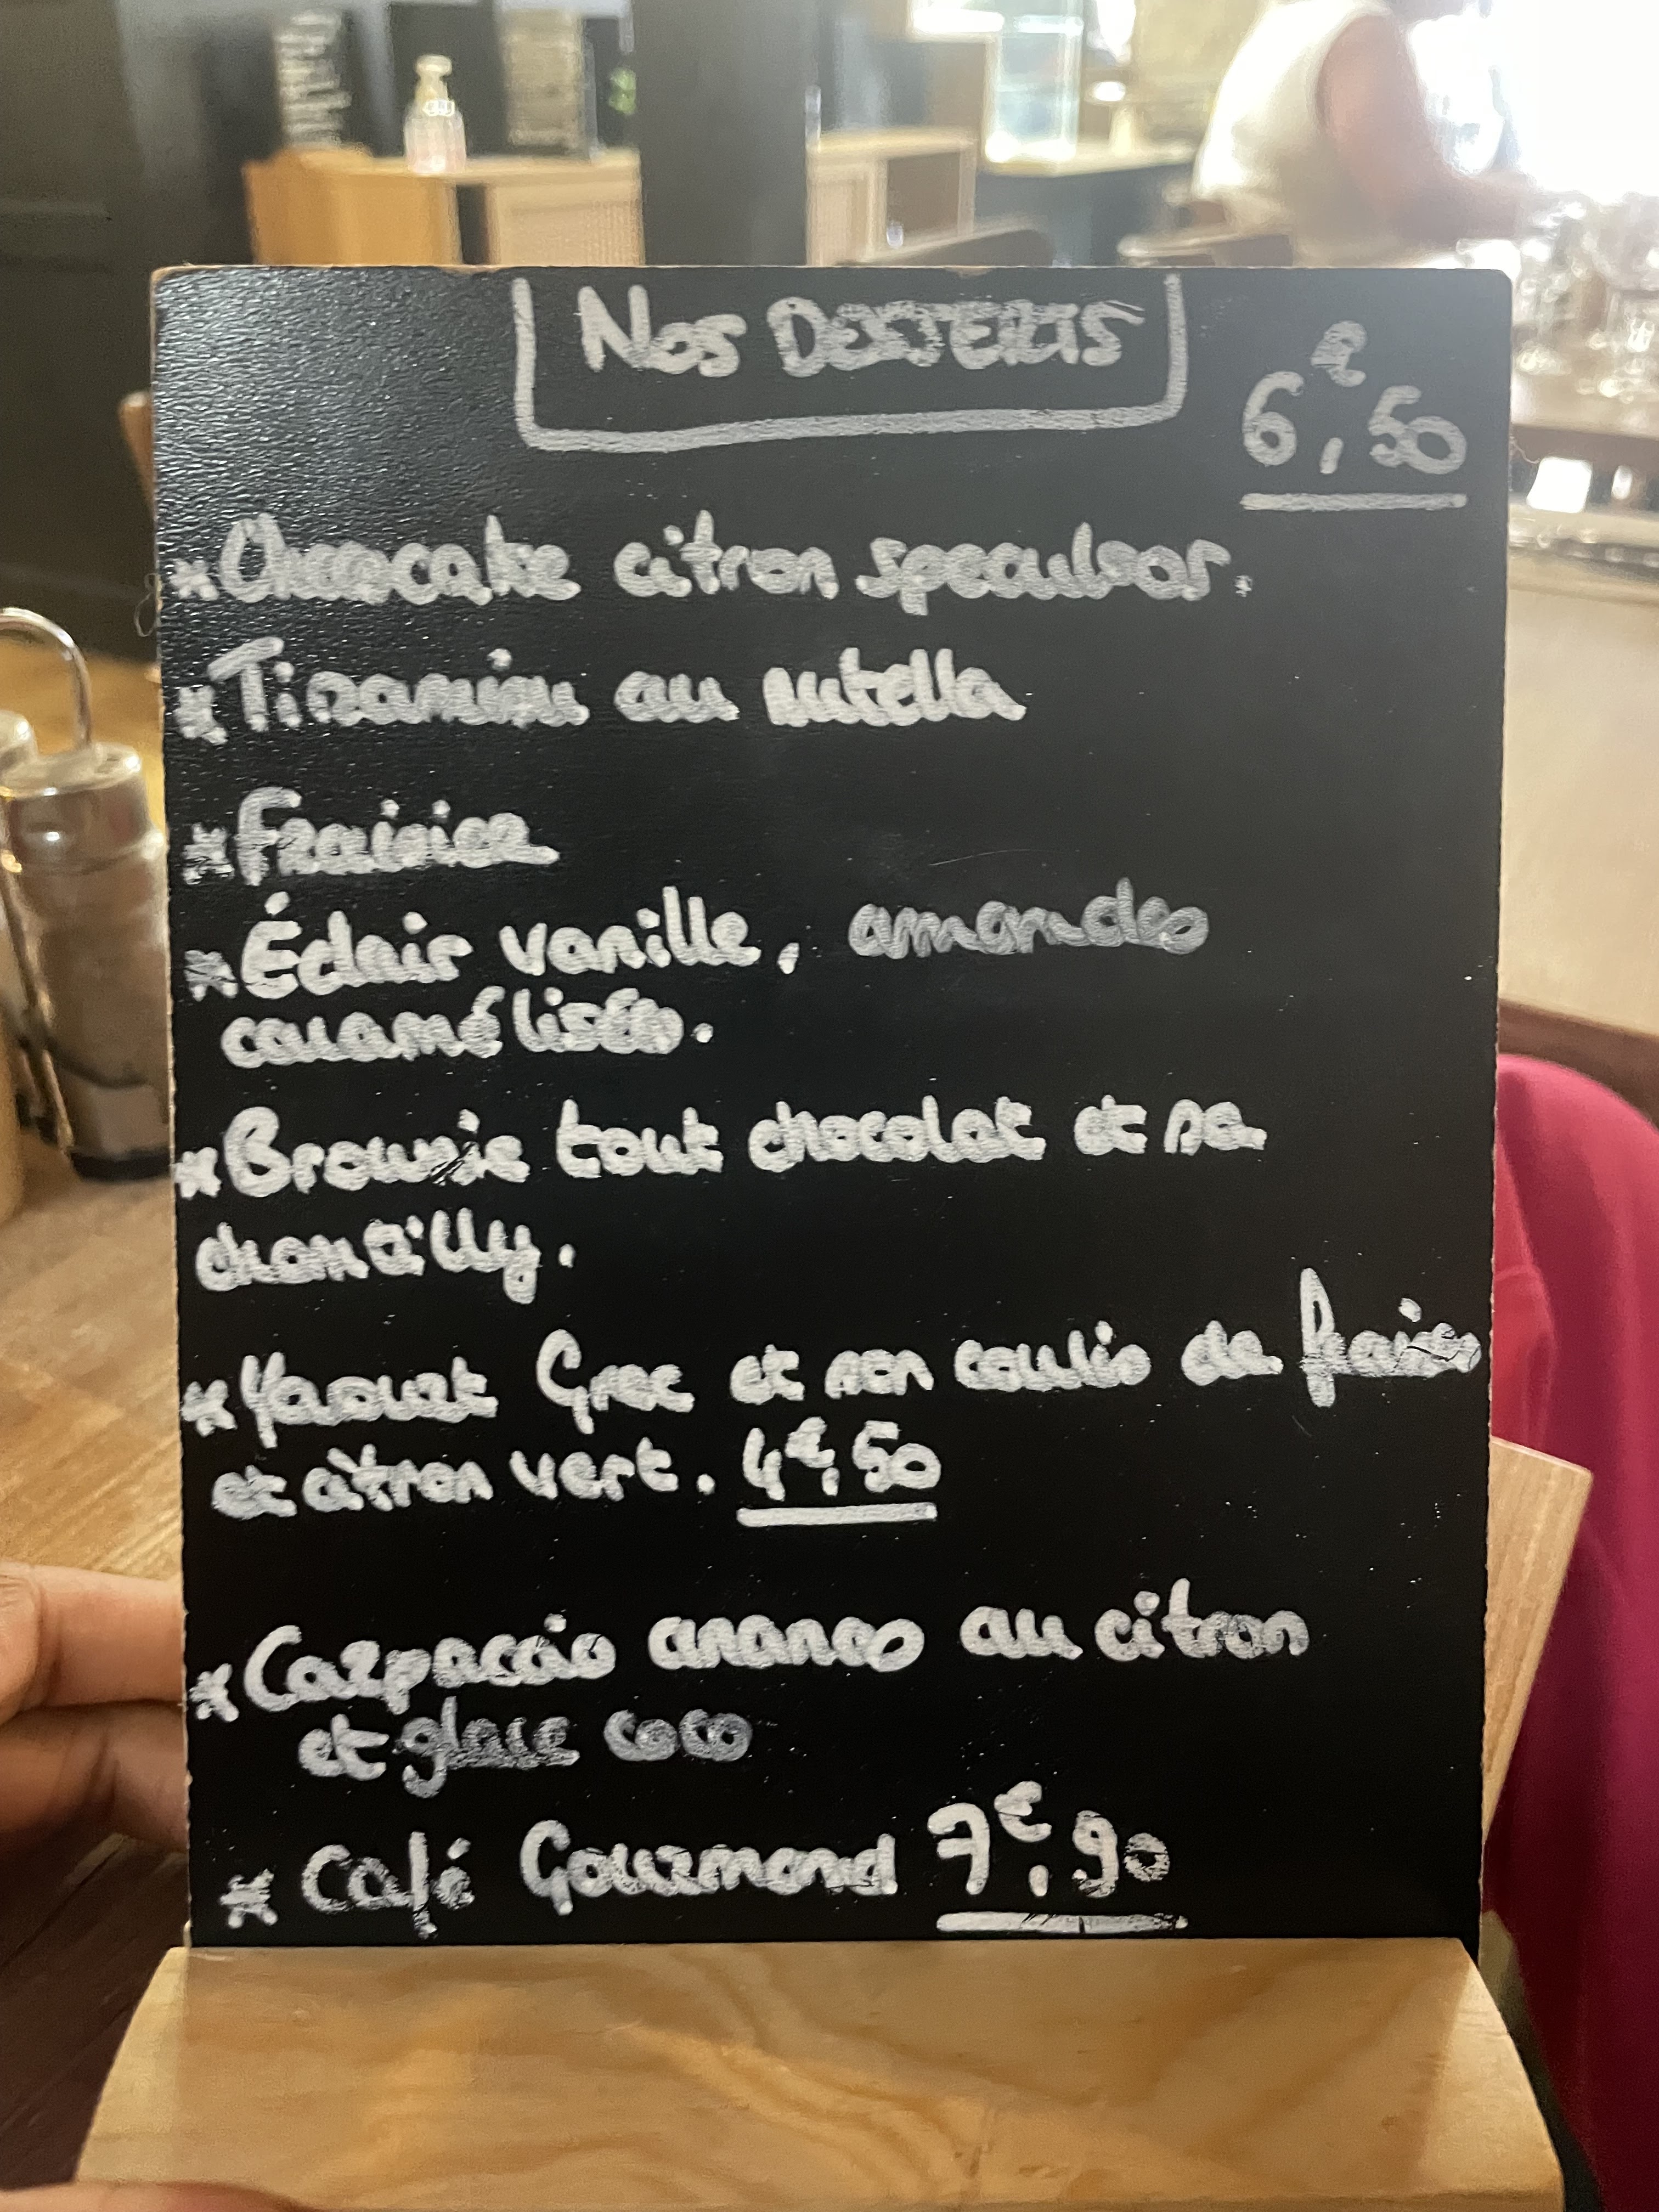 Nos DESSERTS
6€,50
* Cheesecake citron speculoos.
* Tiramisu au nutella
* Fraisier
* Éclair vanille, amandes
caramélisées.
* Brownie tout chocolat et sa
chantilly.
* Yaourt Grec et son coulis de fraises
et citron vert. 4€,50
* Carpaccio ananas au citron
et glace coco
* Café Gourmand 7€,90